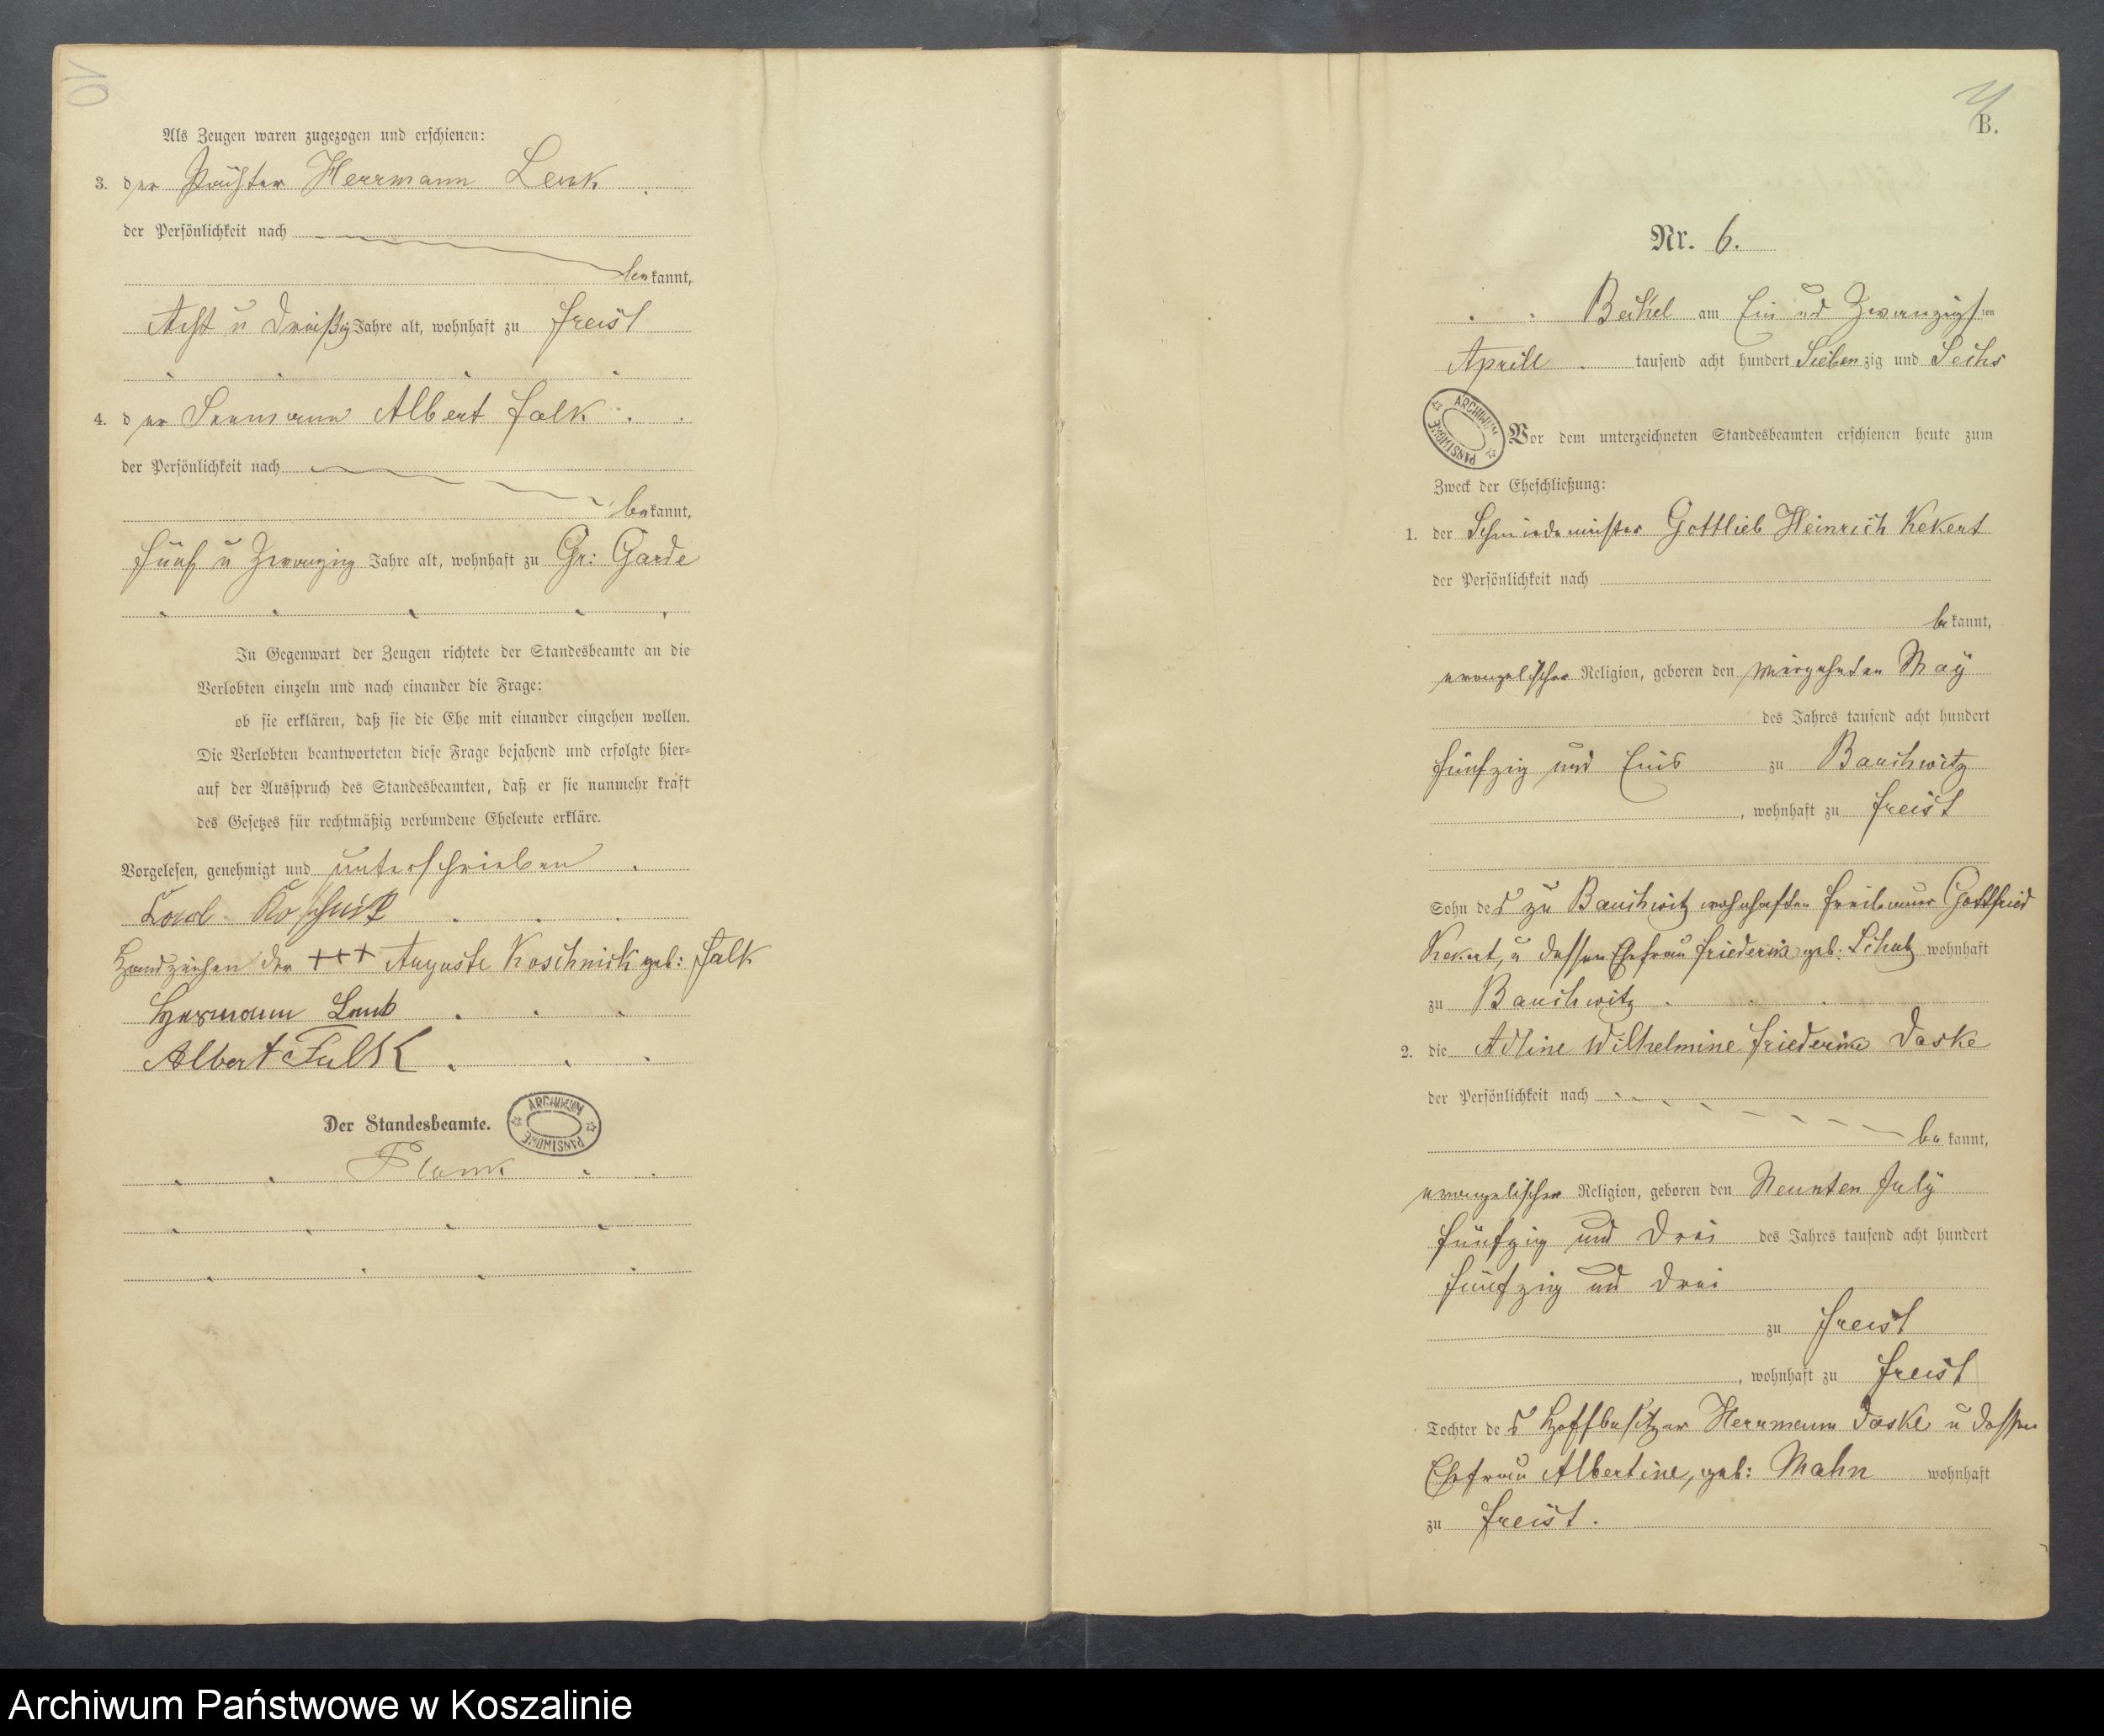 10
Als Zeugen waren zugezogen und erschienen:
3. der Pächter Herrmann Lenk
der Persönlichkeit nach
bekannt,
Acht u Dreißig Jahre alt, wohnhaft zu Freist
4. der Seemann Albert Falk
der Persönlichkeit nach
bekannt,
Fünf u Zwanzig Jahre alt, wohnhaft zu Gr: Garde
In Gegenwart der Zeugen richtete der Standesbeamte an die
Verlobten einzeln und nach einander die Frage:
ob sie erklären, daß sie die Ehe mit einander eingehen wollen.
Die Verlobten beantworteten diese Frage bejahend und erfolgte hier-
auf der Ausspruch des Standesbeamten, daß er sie nunmehr kraft
des Gesetzes für rechtmäßig verbundene Eheleute erkläre.
Vorgelesen, genehmigt und unterschrieben
Koschnik
Handzeichen der +++ Auguste Koschnick geb: Falk
Hermann
Albert Falk
Der Standesbeamte.
ARCHIWUM PAŃSTWOWE
B.
Nr. 6.
Beckel am Ein und Zwanzigsten
Aprill tausend acht hundert Siebenzig und Sechs
ARCHIWUM PAŃSTWOWE
Vor dem unterzeichneten Standesbeamten erschienen heute zum
Zweck der Eheschließung:
1. der Schmiedemeister Gottlieb Heinrich Kekert
der Persönlichkeit nach
bekannt,
evangelischer Religion, geboren den vierzehnten May
des Jahres tausend acht hundert
fünfzig und Eins zu Bauchwitz
, wohnhaft zu Freist
Sohn des zu Bauchwitz wohnhaften Gottfried
Kekert, u dessen Ehefrau Friederike geb: Schulz wohnhaft
zu Bauchwitz
2. die Adline Wilhelmine Friederike Daske
der Persönlichkeit nach
bekannt,
evangelischer Religion, geboren den Neunten July
fünfzig und Drei des Jahres tausend acht hundert
fünfzig und Drei
zu Freist
, wohnhaft zu Freist
Tochter des Hoffbesitzer Herrmann Daske u dessen
Ehefrau Albertine, geb: Mahn wohnhaft
zu Freist.
Archiwum Państwowe w Koszalinie